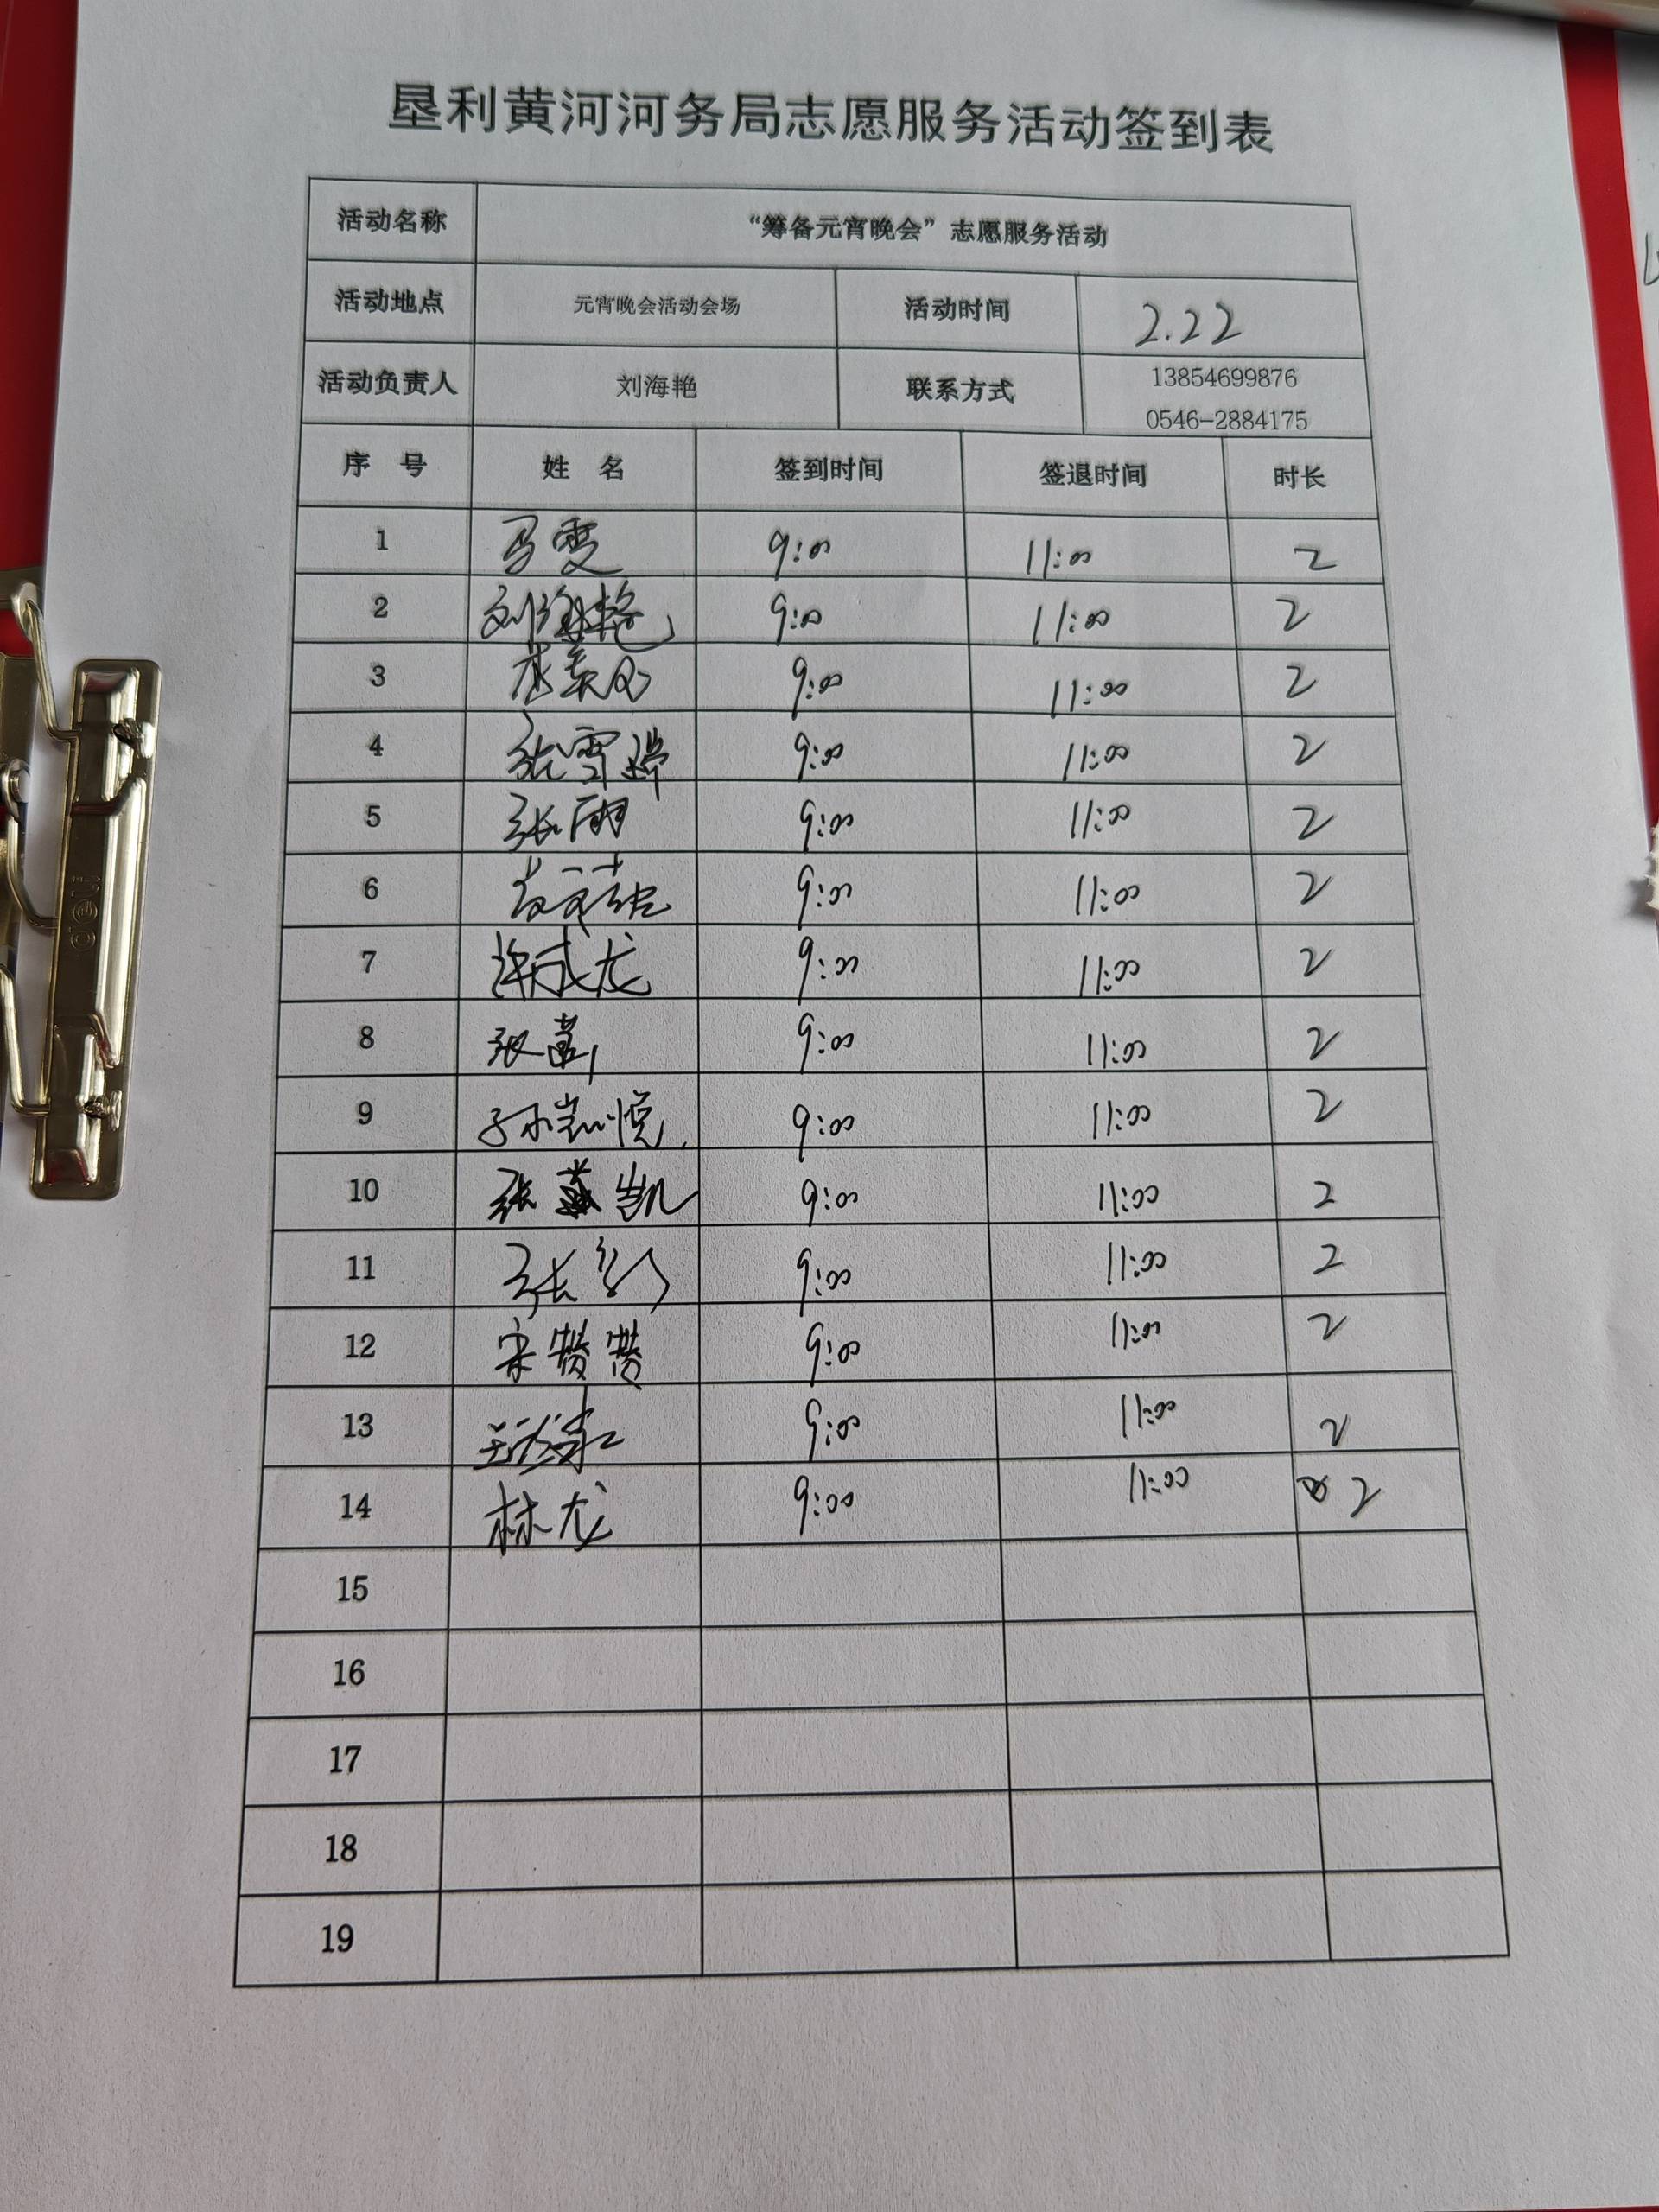 垦利黄河河务局志愿服务活动签到表
活动名称 “筹备元宵晚会”志愿服务活动
活动地点 元宵晚会活动会场 活动时间 2.22
活动负责人 刘海艳 联系方式 13854699876
0546-2884175
序 号 姓 名 签到时间 签退时间 时长
1 马雯 9:00 11:00 2
2 刘海艳 9:00 11:00 2
3 9:00 11:00 2
4 张雪 9:00 11:00 2
5 张雨 9:00 11:00 2
6 9:00 11:00 2
7 许成龙 9:00 11:00 2
8 张 9:00 11:00 2
9 孙凯悦 9:00 11:00 2
10 张 凯 9:00 11:00 2
11 张 9:00 11:00 2
12 宋赞赞 9:00 11:00 2
13 9:00 11:00 2
14 林龙 9:00 11:00 2
15
16
17
18
19
deli